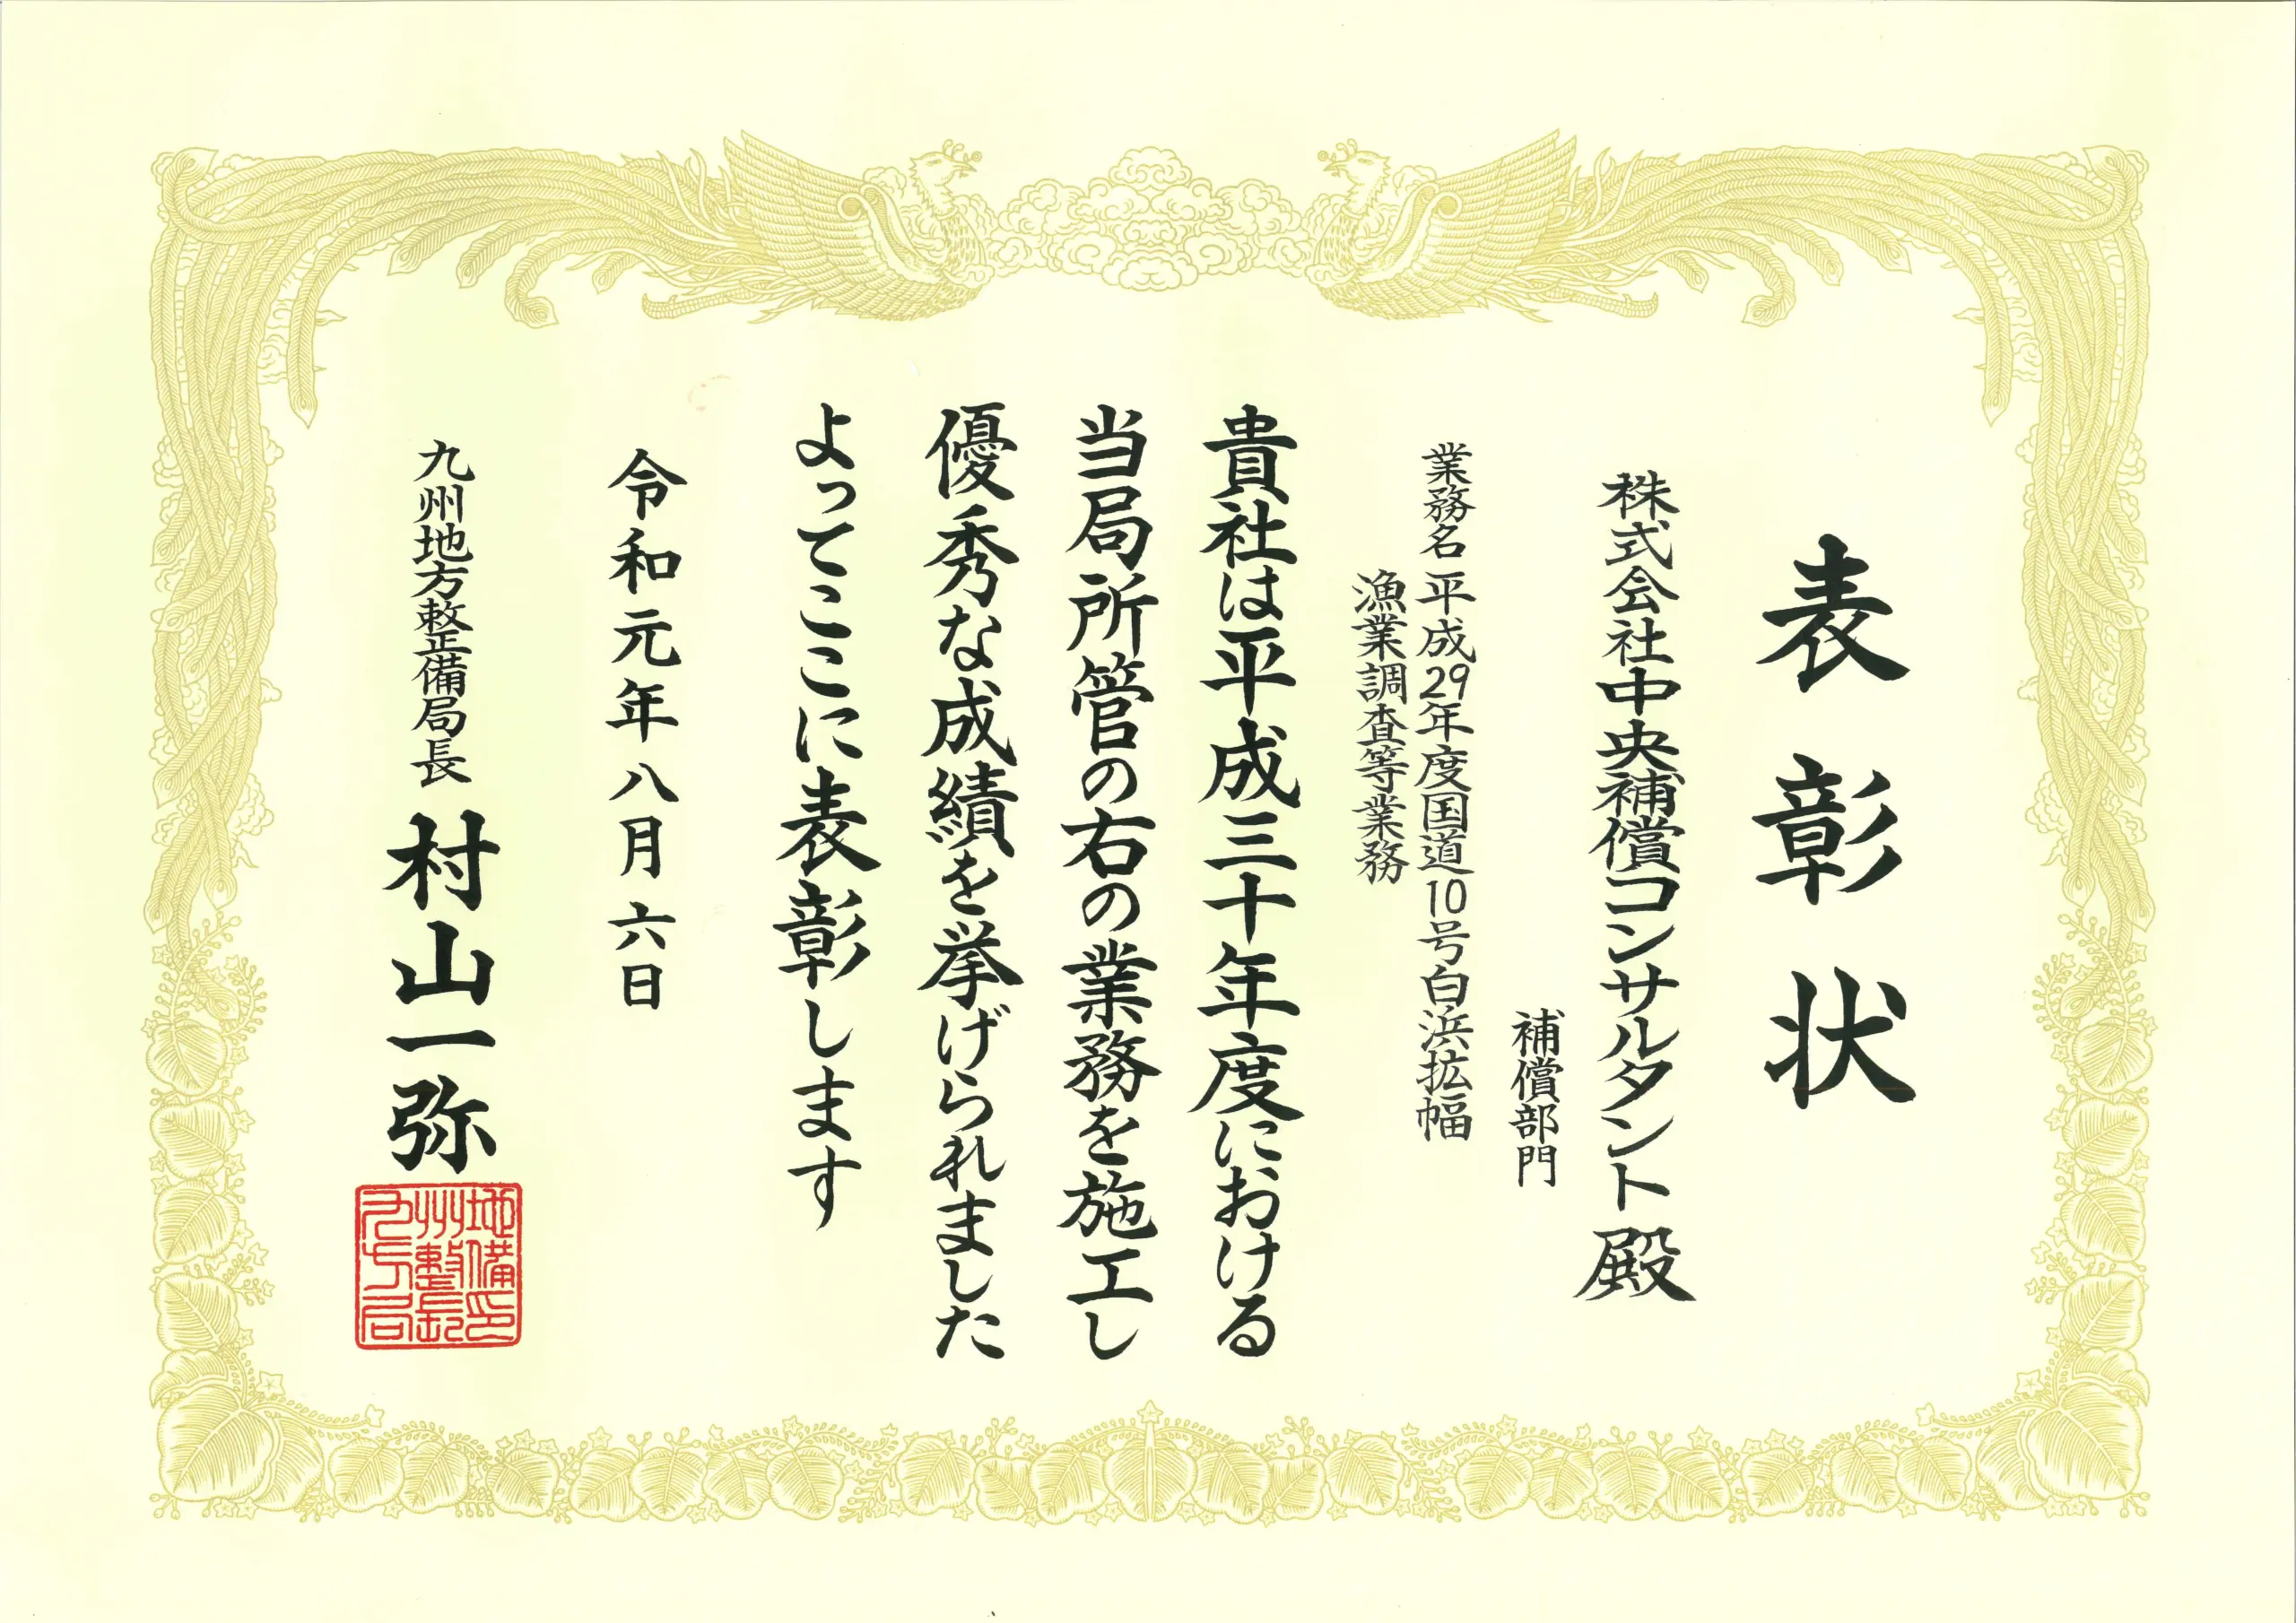 表彰状
株式会社中央補償コンサルタント殿
補償部門
業務名 平成29年度国道10号白浜拡幅
漁業調査等業務
貴社は平成三十年度における
当局所管の右の業務を施工し
優秀な成績を挙げられました
よってここに表彰します
令和元年八月六日
九州地方整備局長 村山一弥